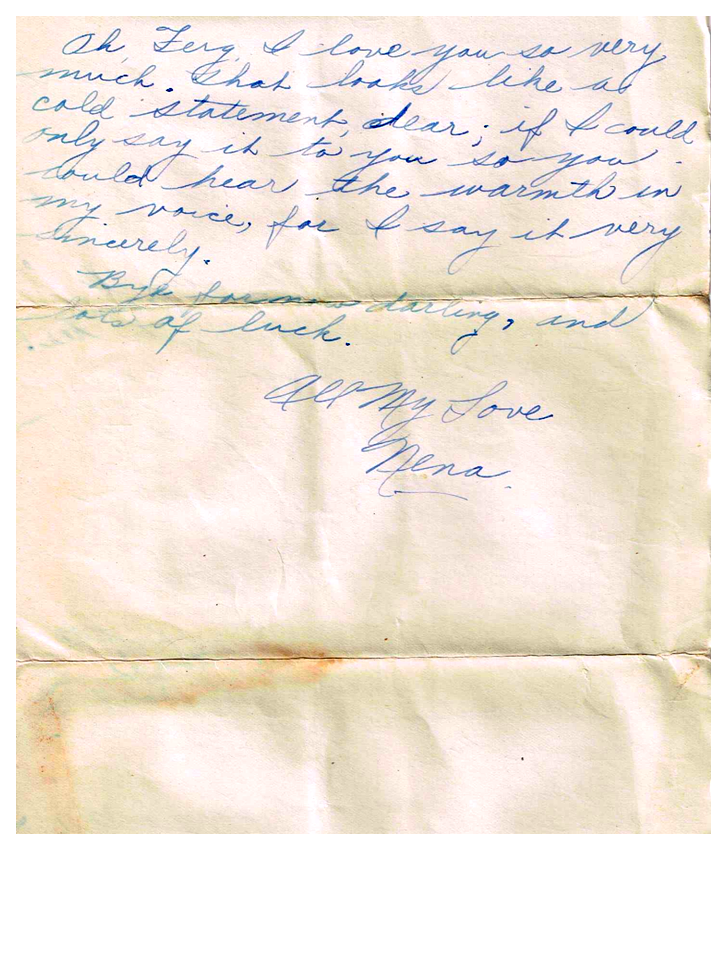 Oh, Ferg, I love you so very
much. That looks like a
cold statement, dear; if I could
only say it to you so you
could hear the warmth in
my voice, for I say it very
sincerely.
Bye for now darling, and
lots of luck.
All My Love
Nena.